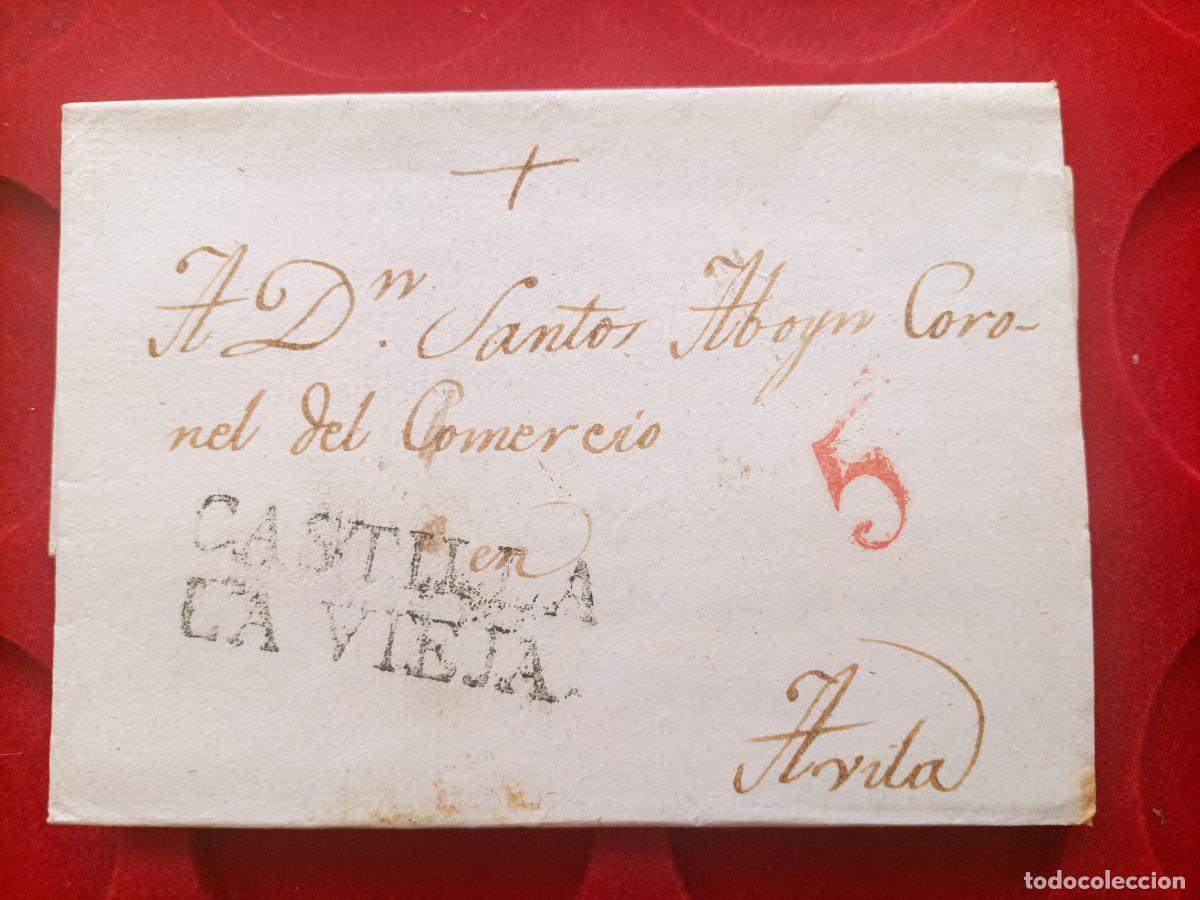 +
A Dn. Santos Aboyn Coro-
nel del Comercio
5
en
CASTILLA
LA VIEJA.
Avila
todocoleccion